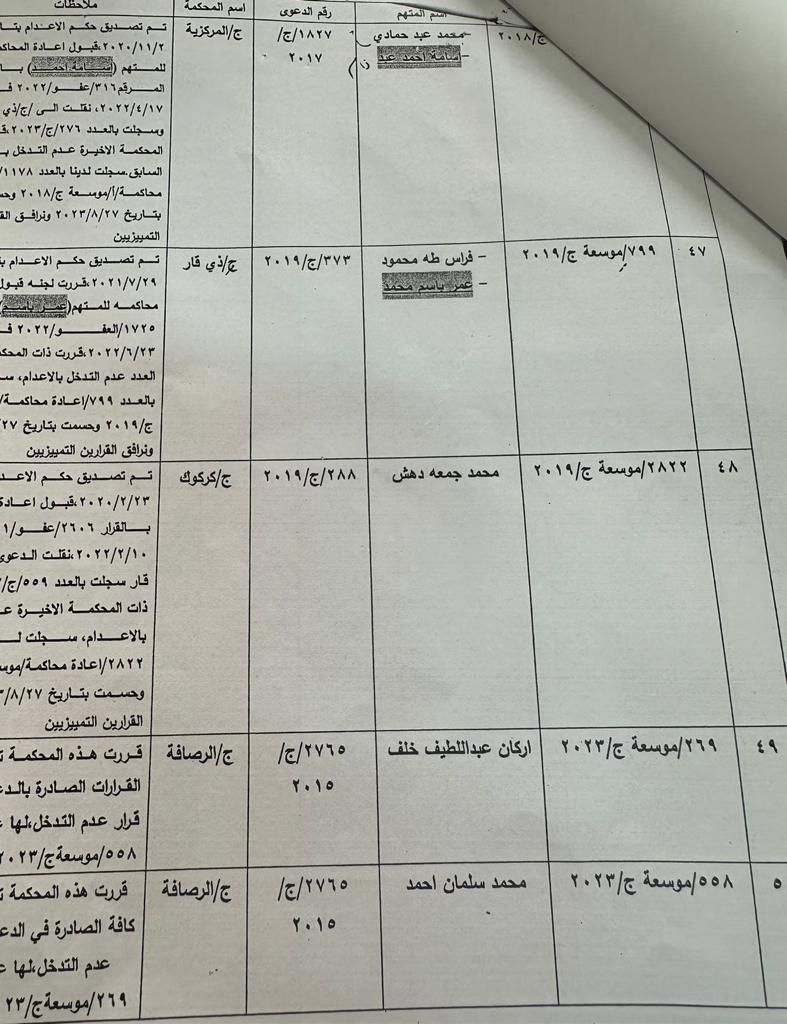 اسم المتهم
رقم الدعوى
اسم المحكمة
ملاحظات
ج/٢٠١٨
محمد عبد حمادي
اسامة احمد عبد
١٨٢٧/ج/
٢٠١٧
ج/المركزية
تم تصديق حكم الاعدام
٢٠٢٠/١١/٢،قبول اعادة
للمتهم (اسامة احمد)
المرقم٣١٦/عفو/٢٠٢٢
٢٠٢٢/٤/١٧، نقلت الى /ج/ذي
وسجلت بالعدد ٢٧٦/ج/٢٠٢٣
المحكمة الاخيرة عدم التدخل
السابق.سجلت لدينا بالعدد ١١٧٨/
محاكمة/أ/موسعة ج/٢٠١٨
بتاريخ ٢٠٢٣/٨/٢٧ ونرافق
التمييزيين
٤٧
٧٩٩/موسعة ج/٢٠١٩
- فراس طه محمود
- عمر باسم محمد
٣٧٣/ج/٢٠١٩
ج/ذي قار
تم تصديق حكم الاعدام
٢٠٢١/٧/٢٩،قررت لجنه قبول
محاكمه للمتهم(عمر باسم
١٧٢٥/العفو/٢٠٢٢
٢٠٢٢/٦/٢٣،قررت ذات
العدد عدم التدخل بالاعدام،
بالعدد ٧٩٩/اعادة محاكمة/
ج/٢٠١٩ وحسمت بتاريخ ٢٧/
ونرافق القرارين التمييزيين
٤٨
٢٨٢٢/موسعة ج/٢٠١٩
محمد جمعه دهش
٢٨٨/ج/٢٠١٩
ج/كركوك
تم تصديق حكم
٢٠٢٠/٢/٢٣،قبول
بالقرار ٢٦٠٦/عفو/
٢٠٢٢/٢/١٠،نقلت
قار سجلت بالعدد ٥٥٩/ج/
ذات المحكمة الاخيرة
بالاعدام، سجلت
٢٨٢٢/اعادة محاكمة/
وحسمت بتاريخ ٨/٢٧/
القرارين التمييزيين
٤٩
٢٦٩/موسعة ج/٢٠٢٣
اركان عبداللطيف خلف
٢٧٦٥/ج/
٢٠١٥
ج/الرصافة
قررت هذه المحكمة
القرارات الصادرة
قرار عدم التدخل،لها
٥٥٨/موسعةج/٢٠٢٣
٥
٥٥٨/موسعة ج/٢٠٢٣
محمد سلمان احمد
٢٧٦٥/ج/
٢٠١٥
ج/الرصافة
قررت هذه المحكمة
كافة الصادرة في
عدم التدخل،لها
٢٦٩/موسعةج/٢٣